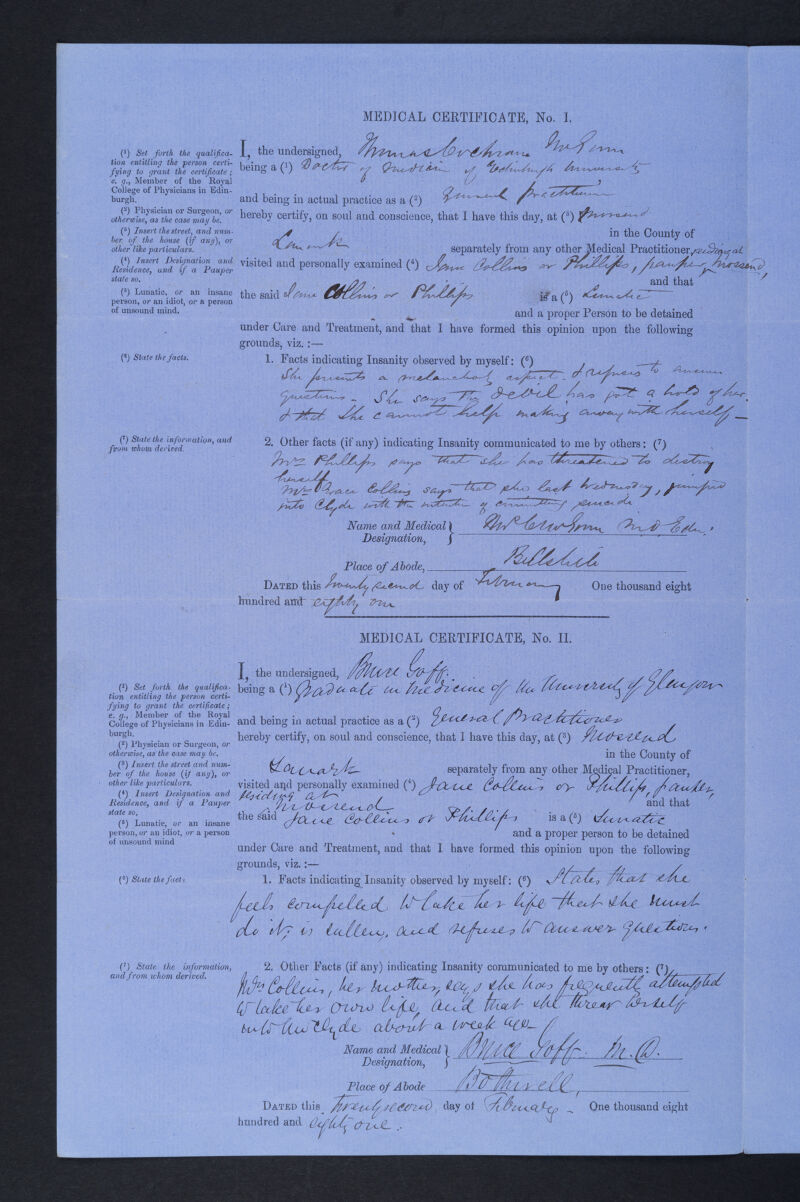 MEDICAL CERTIFICATE, No. I.
(¹) Set forth the qualifica-
tion entitling the person certi-
fying to grant the certificate;
e. g., Member of the Royal
College of Physicians in Edin-
burgh.
(²) Physician or Surgeon, or
otherwise, as the case may be.
(³) Insert the street, and num-
ber of the house (if any), or
other like particulars.
(⁴) Insert Designation and
Residence, and if a Pauper
state so.
(⁵) Lunatic, or an insane
person, or an idiot, or a person
of unsound mind.
I, the undersigned, Thomas Cochrane
being a (¹) Doctor of Medicine of Edinburgh University
and being in actual practice as a (²) General Practitioner
hereby certify, on soul and conscience, that I have this day, at (³) Mossend
in the County of
Lanark separately from any other Medical Practitioner,
visited and personally examined (⁴) Jane Collins or Phillips, pauper, residing at Mossend,
and that
the said Jane Collins or Phillips is a (⁵) Lunatic
and a proper Person to be detained
under Care and Treatment, and that I have formed this opinion upon the following
grounds, viz. :—
(⁶) State the facts.
1. Facts indicating Insanity observed by myself: (⁶)
She presents a melancholy aspect & refuses to answer
questions – She says the devil has got a hold of her
& that she cannot help making away with herself –
(⁷) State the information, and
from whom derived.
2. Other facts (if any) indicating Insanity communicated to me by others: (⁷)
Mrs Phillips says that she has threatened to destroy
herself
Mrs Grace Collins says that she last Wednesday, jumped
into Clyde with the intention of committing suicide
Name and Medical
Designation, M D Edin.
Place of Abode, Bellshill
DATED this Twenty second day of February One thousand eight
hundred and eighty one
MEDICAL CERTIFICATE, No. II.
(¹) Set forth the qualifica-
tion entitling the person certi-
fying to grant the certificate;
e. g., Member of the Royal
College of Physicians in Edin-
burgh.
(²) Physician or Surgeon, or
otherwise, as the case may be.
(³) Insert the street and num-
ber of the house (if any), or
other like particulars.
(⁴) Insert Designation and
Residence, and if a Pauper
state so,
(⁵) Lunatic, or an insane
person, or an idiot, or a person
of unsound mind
I, the undersigned, Bruce Goff.
being a (¹) Graduate in Medicine of the University of Glasgow
and being in actual practice as a (²) General Practitioner
hereby certify, on soul and conscience, that I have this day, at (³) Mossend
in the County of
Lanark separately from any other Medical Practitioner,
visited and personally examined (⁴) Jane Collins or Phillips, pauper,
residing at Mossend and that
the said Jane Collins or Phillips is a (⁵) Lunatic
and a proper person to be detained
under Care and Treatment, and that I have formed this opinion upon the following
grounds, viz. :—
(⁶) State the facts
1. Facts indicating Insanity observed by myself: (⁶) States that she
feels compelled to take her life that she must
do it; is sullen, and refuses to answer questions.
(⁷) State the information,
and from whom derived.
2. Other Facts (if any) indicating Insanity communicated to me by others: (⁷)
Mrs Collins, her mother, says she has frequently attempted
to take her own life, and that she threw herself
into the Clyde about a week ago
Name and Medical
Designation, Bruce Goff. M. D.
Place of Abode Bothwell,
DATED this Twenty second day of February One thousand eight
hundred and eighty one.